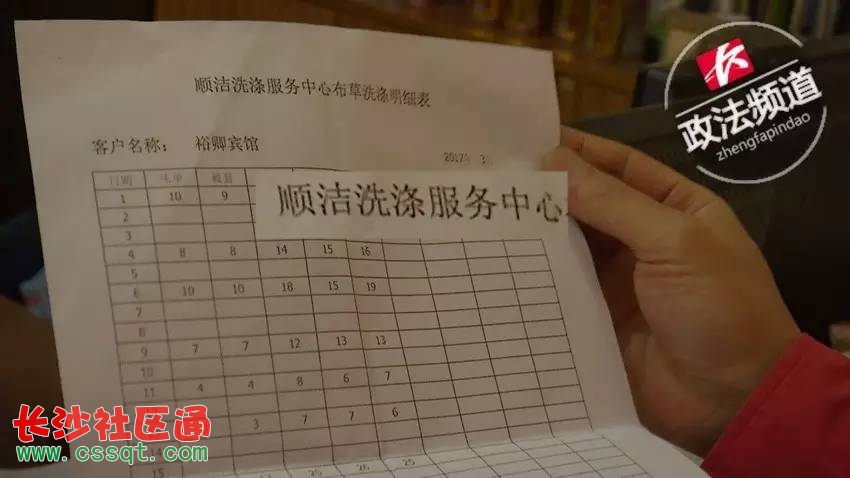 政法频道
zhengfapindao
顺洁洗涤服务中心布草洗涤明细表
客户名称： 裕卿宾馆
2017年 3
日期 床单 被套
1 10 9
顺洁洗涤服务中心
2
3
4 8 8 14 15 16
5
6 10 10 18 15 19
7
8
9 7 7 12 13 13
10
11 4 4 8 6 7
3 7 7 6
15 25 26 25
长沙社区通
www.cssqt.com